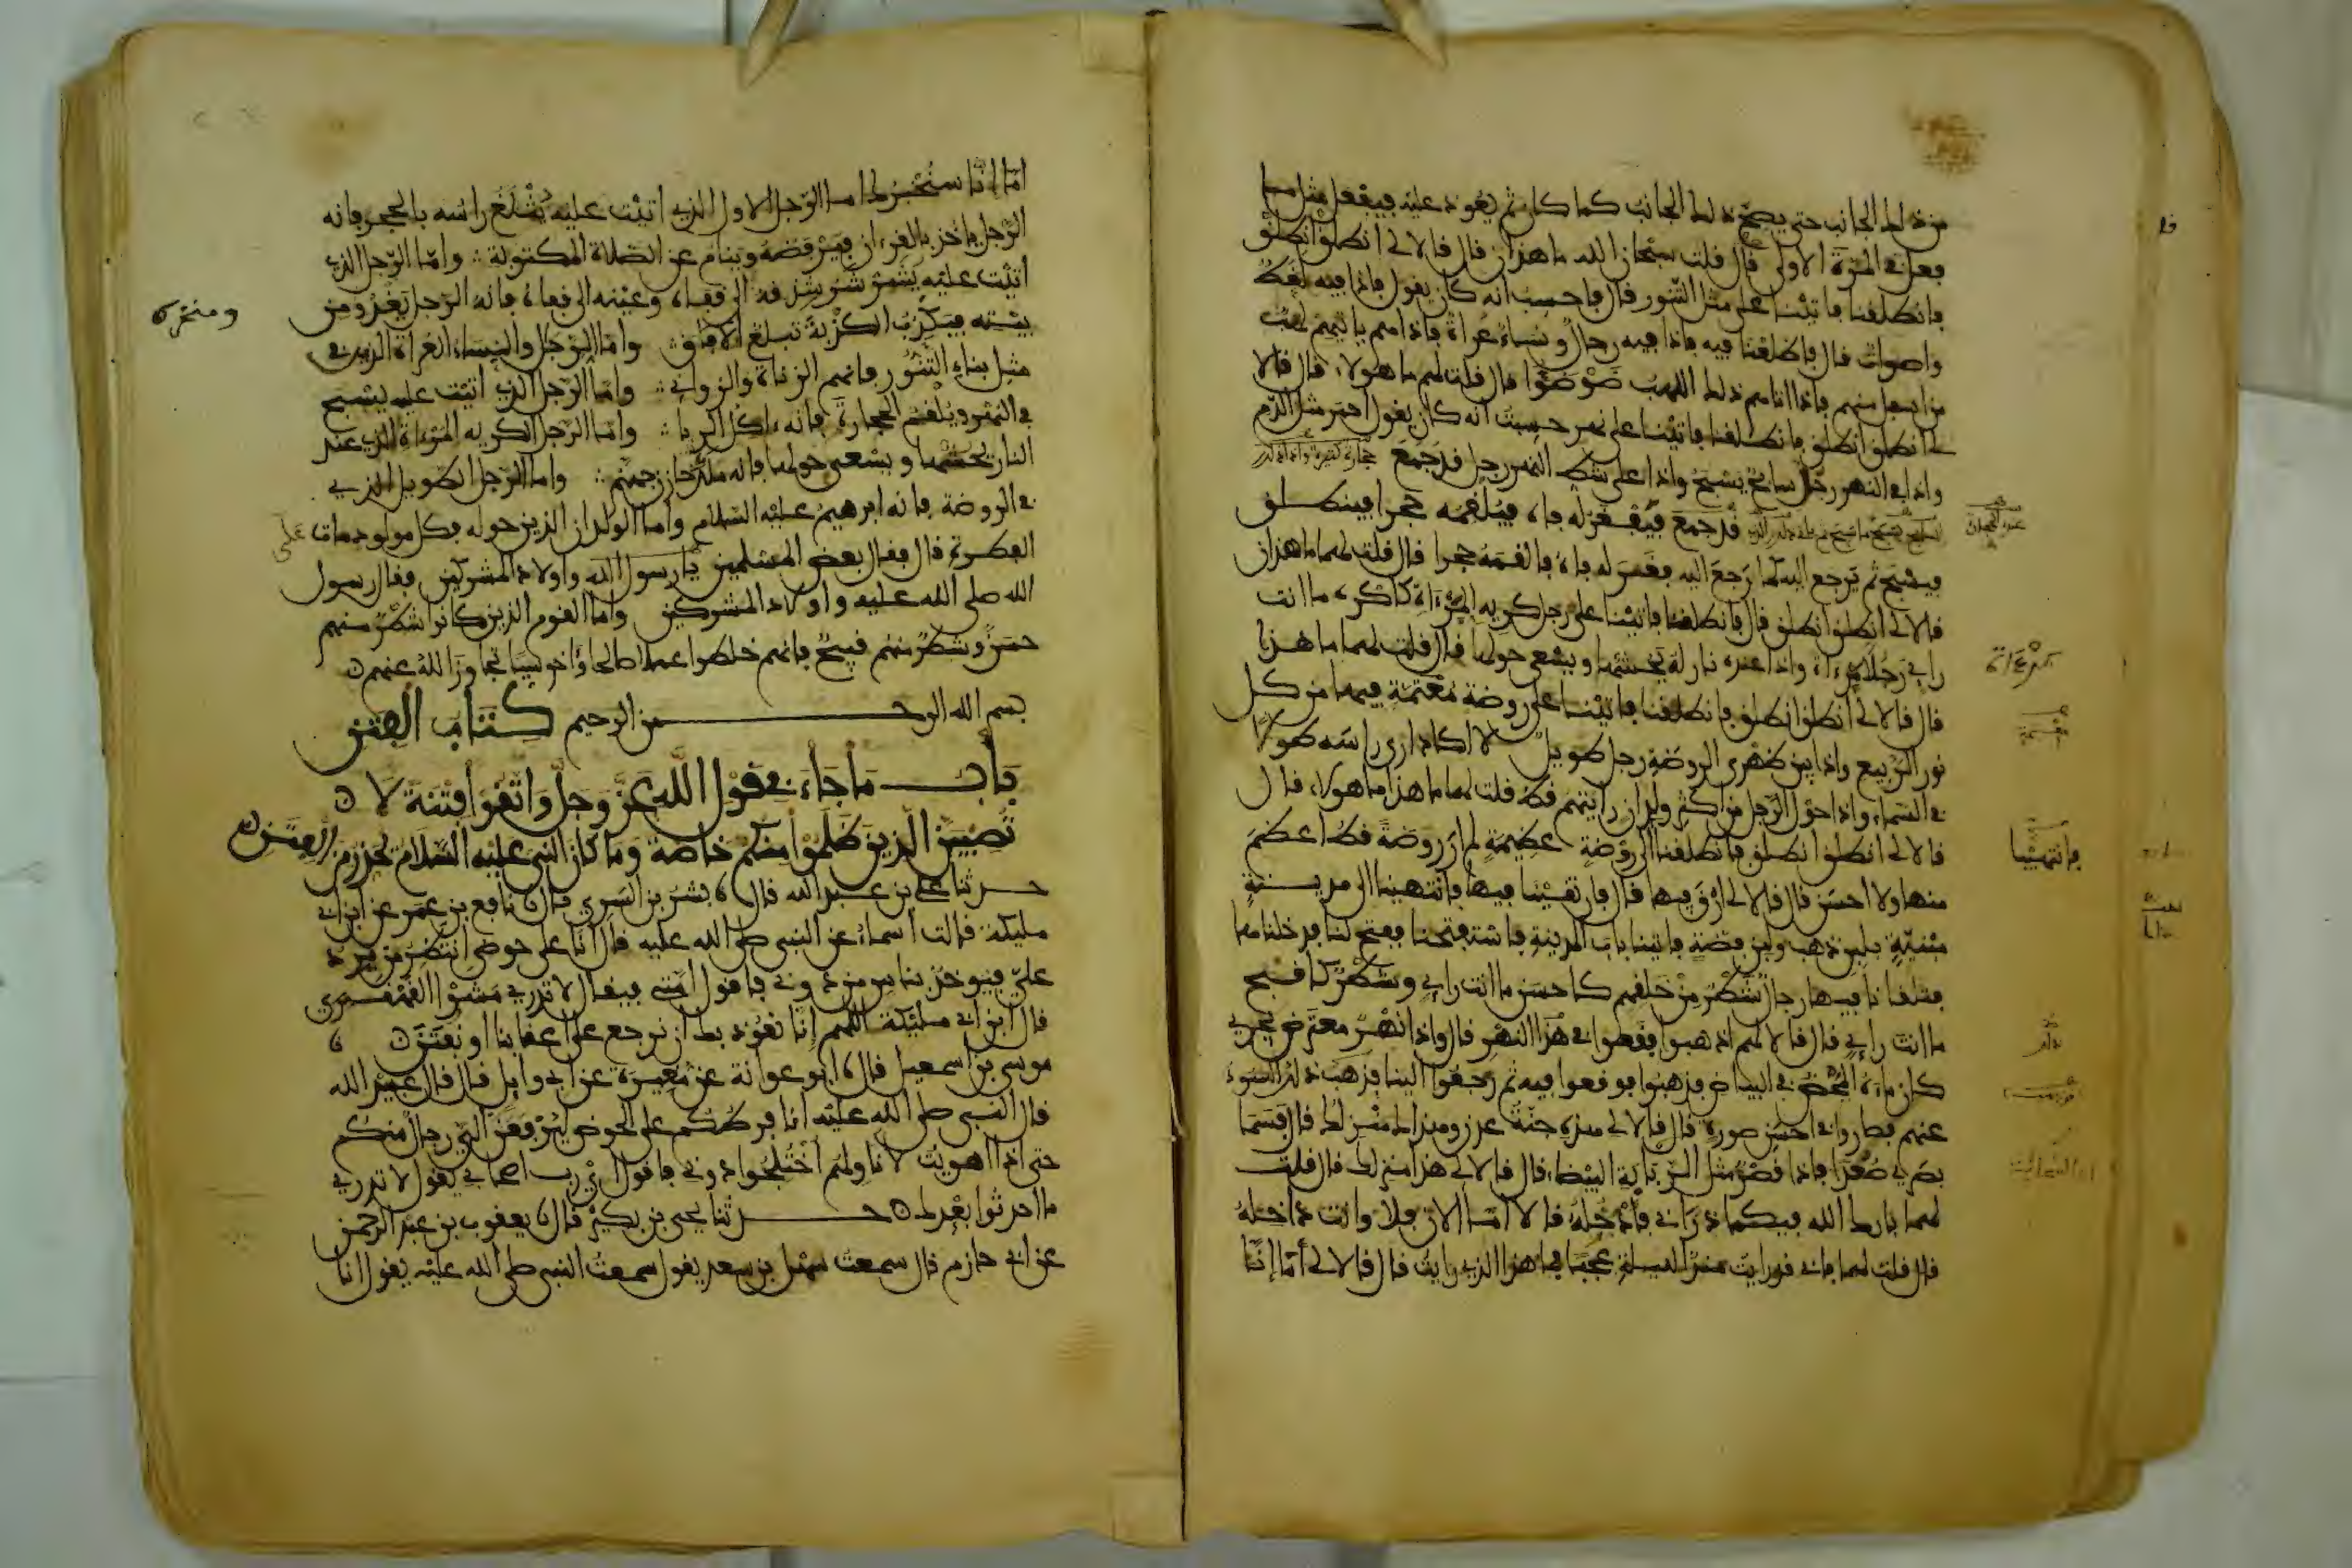 من ذلك الجانب حتى يصح ذلك الجانب كما كان ثم يعود عليه فيفعل مثل ما
فعل في المرة الاولى قال قلت سبحان الله ما هذان قال قالا لي انطلق انطلق
فانطلقنا فاتينا على مثل التنور قال فاحسب انه كان يقول فاذا فيه لغط
واصوات قال فاطلعنا فيه فاذا فيه رجال ونساء عراة فاذا هم ياتيهم لهب
من اسفل منهم فاذا اتاهم ذلك اللهب ضوضوا قال قلت لهم ما هولاء قال قالا
لي انطلق انطلق فانطلقنا فاتينا على نهر حسبت انه كان يقول احمر مثل الدم
واذا في النهر رجل سابح يسبح واذا على شط النهر رجل قد جمع حجارة كثيرة واذا ذلك
السابح يسبح ما سبح ثم ياتي ذلك الذي قد جمع فيفغر له فاه فيلقمه حجرا فينطلق
فيسبح ثم يرجع اليه كلما رجع اليه فغر له فاه فالقمه حجرا قال قلت لهما ما هذان
قالا لي انطلق انطلق قال فانطلقنا فاتينا على رجل كريه المرءاة كاكره ما انت
راي رجلا مرءاة واذا عنده نار له يحشها ويسعى حولها قال قلت لهما ما هذا
قال قالا لي انطلق انطلق فانطلقنا فاتينا على روضة معتمة فيها من كل
نور الربيع واذا بين ظهري الروضة رجل طويل لا اكاد ارى راسه طولا
في السماء واذا حول الرجل من اكثر ولدان رايتهم قط قلت لهما ما هذا ما هولاء قال
قالا لي انطلق انطلق فانطلقنا الى روضة عظيمة لم ار روضة قط اعظم
فانتهينا
منها ولا احسن قال قالا لي ارق فيها قال فارتقينا فيها فانتهينا الى مدينة
مبنية بلبن ذهب ولبن فضة فاتينا باب المدينة فاستفتحنا ففتح لنا فدخلناها
فتلقانا فيها رجال شطر من خلقهم كاحسن ما انت راي وشطر كاقبح
ما انت راي قال قالا لهم اذهبوا فقعوا في هذا النهر قال واذا نهر معترض يجري
كان ماءه المحض في البياض فذهبوا فوقعوا فيه ثم رجعوا الينا فذهب ذلك السوء
عنهم فصاروا في احسن صورة قال قالا لي هذه جنة عدن وهذاك منزلك قال فسما
بصري صعدا فاذا قصر مثل الربابة البيضاء قال قالا لي هذا منزلك قال قلت
لهما بارك الله فيكما ذراني فادخله قالا اما الان فلا وانت داخله
قال قلت لهما فاني قد رايت منذ الليلة عجبا فما هذا الذي رايت قال قالا لي اما انا
اما انا سنخبرك اما الرجل الاول الذي اتيت عليه يثلغ راسه بالحجر فانه
الرجل ياخذ بالقرءان فيرفضه وينام عن الصلاة المكتوبة واما الرجل الذي
اتيت عليه يشرشر شدقه الى قفاه وعينه الى قفاه فانه الرجل يغدو من
ومنخره
بيته فيكذب الكذبة تبلغ الافاق واما الرجال والنساء العراة الذين في
مثل بناء التنور فانهم الزناة والزواني واما الرجل الذي اتيت عليه يسبح
في النهر ويلقم الحجارة فانه ءاكل الربا واما الرجل الكريه المرءاة الذي عند
النار يحشها ويسعى حولها فانه ملك خازن جهنم واما الرجل الطويل الذي
في الروضة فانه ابرهيم عليه السلام واما الولدان الذين حوله فكل مولود مات على
الفطرة قال فقال بعض المسلمين يا رسول الله واولاد المشركين فقال رسول
الله صلى الله عليه واولاد المشركين واما القوم الذين كانوا شطر منهم
حسن وشطر منهم قبيح فانهم خلطوا عملا صالحا وءاخر سيئا تجاوز الله عنهم
بسم الله الرحمن الرحيم كتاب الفتن
باب ما جاء في قول الله عز وجل واتقوا فتنة لا
تصيبن الذين ظلموا منكم خاصة وما كان النبي عليه السلام يحذر من الفتن
حدثنا علي بن عبد الله قال بشر بن السري قال نافع بن عمر عن ابن ابي
مليكة قالت اسماء عن النبي صلى الله عليه قال انا على حوضي انتظر من يرد
علي فيوخذ بناس من دوني فاقول امتي فيقال لا تدري مشوا القهقرى
قال ابن ابي مليكة اللهم انا نعوذ بك ان نرجع على اعقابنا او نفتن
موسى بن اسمعيل قال ابو عوانة عن مغيرة عن ابي وايل قال قال عبد الله
قال النبي صلى الله عليه انا فرطكم على الحوض ليرفعن الي رجال منكم
حتى اذا اهويت لاناولهم اختلجوا دوني فاقول اي رب اصحابي يقول لا تدري
ما احدثوا بعدك حدثنا يحيى بن بكير قال يعقوب بن عبد الرحمن
عن ابي حازم قال سمعت سهل بن سعد يقول سمعت النبي صلى الله عليه يقول انا